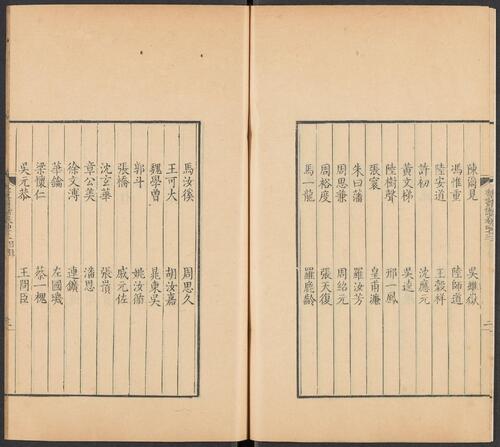 陳爾見 吳維嶽
馮惟重 陸師道
陸安道 王穀祥
許初 沈應元
黃文梯 吳逵
陸樹聲 邢一鳳
張寰 皇甫濂
朱曰藩 羅汝芳
周思兼 周紹元
周裕度 張天復
馬一龍 羅鹿齡
馬汝徯 周思久
王可大 胡汝嘉
魏學曾 晁東吳
郭斗 姚汝循
張橋 戚元佐
沈玄華 張㷆
章公美 潘恩
徐文溥 連鑛
華鑰 左國璣
梁懷仁 蔡一槐
吳元恭 王問臣